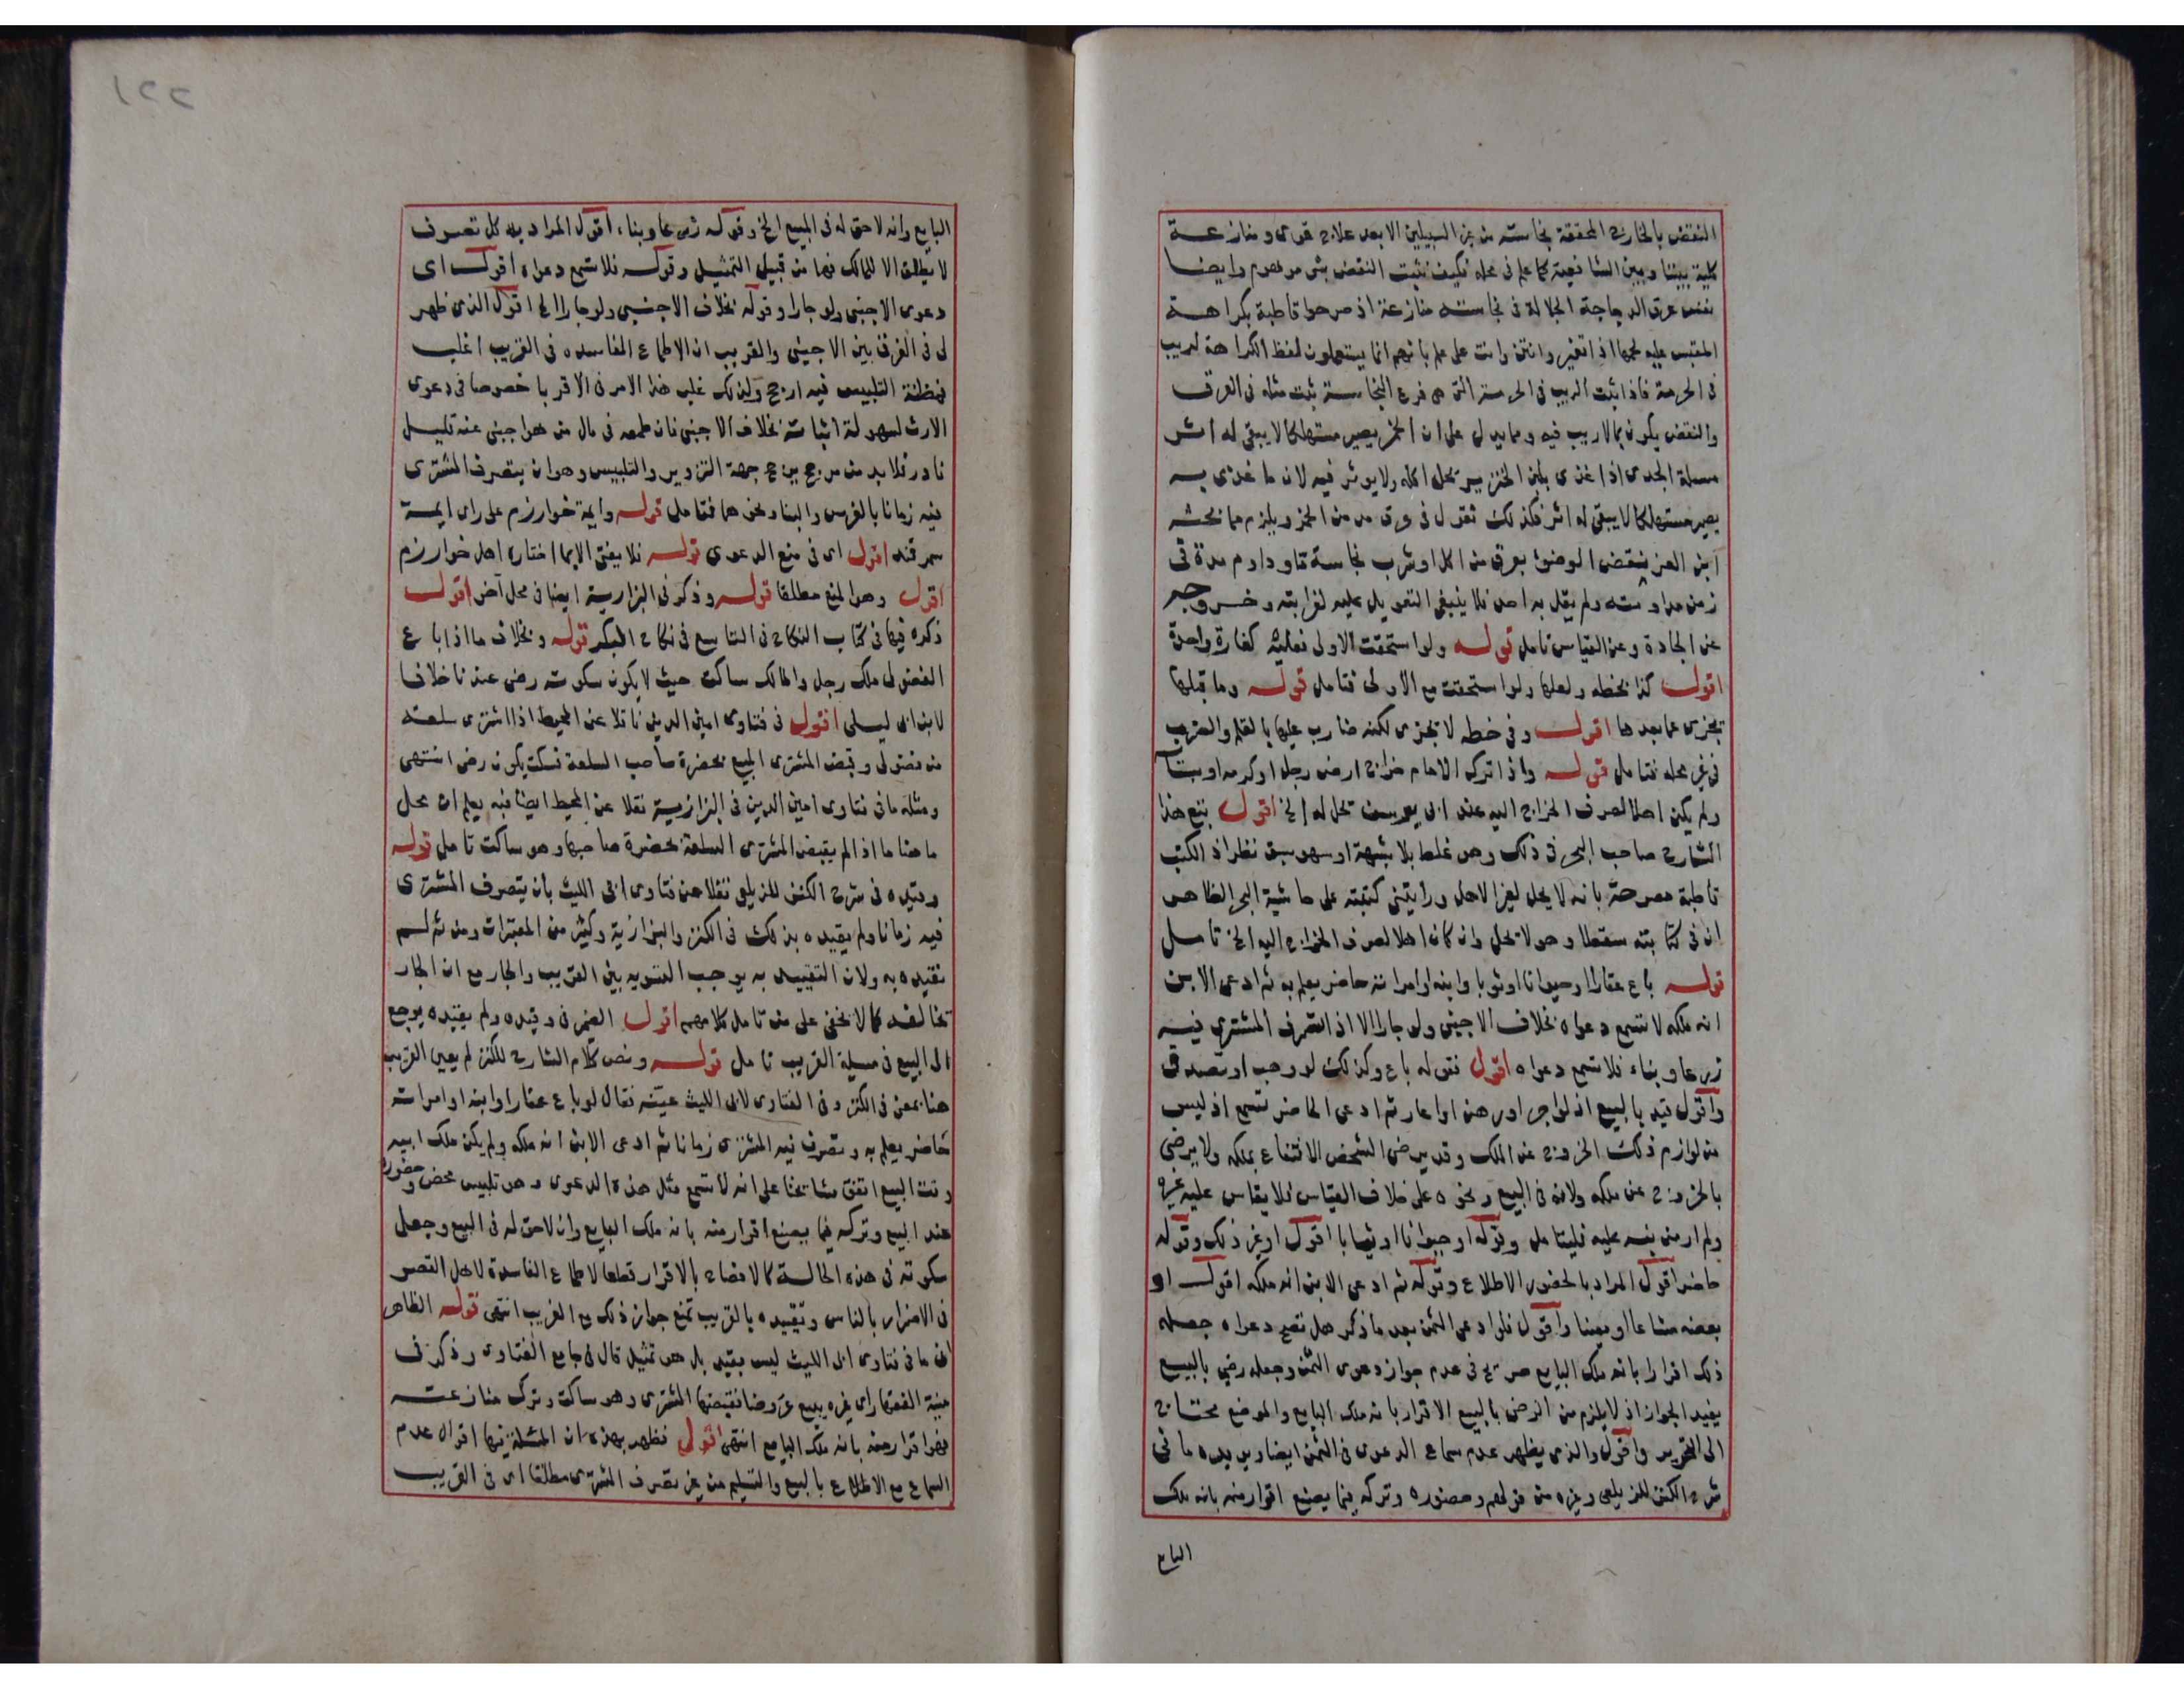 النقض بالخارج المحققة نجاسته من غير السبيلين الا بعد علاج قوى ومنازعة
كلية بيننا وبين الشافعية كما علم فى محله فكيف يثبت النقض بشى موهوم وايضا
نفس عرق الدجاجة الجلالة فى نجاسته منازعة اذ صرحوا قاطبة بكراهة
المقيس عليه لحمها اذا تغير وانتن وانت على علم بانهم انما يستعملون لفظ الكراهة لريب
فى الحرمة فاذا ثبت الريب فى الحرمة التى هى فرع النجاسة ثبت مثله فى العرق
والنقض يكون بما لا ريب فيه ومما يدل على ان الخمر يصير مستهلكا لا يبقى له اثر
مسئلة الجدى اذا غذى بلبن الخنزير يحل اكله ولا يوثر فيه لان ما غذى به
يصير مستهلكا لا يبقى له اثر فكذلك نقول فى عرق مدمن الخمر ويلزم مما بحثه
ابن العز ينقض الوضوء بعرق من اكل او شرب نجاسة وداوم مدة فى
زمن مداومته ولم يقل به احد فلا ينبغى التعويل عليه لغرابته وخروجه
عن الجادة وعن القياس تامل قوله ولو استحقت الاولى فعليه كفارة واحدة
اقول كذا بخطه ولعلها ولو استحقت مع الاولى فتامل قوله وما قبلها
تجزى عما بعدها اقول وفى خطه لا تجزى لكنه ضارب عليها بالقلم والضرب
فى غير محله فتامل قوله واذا ترك الامام خراج ارض رجل او كرمه او بستانه
ولم يكن اهلا لصرف الخراج اليه عند ابى يوسف تحل له الخ اقول تبع هذا
الشارح صاحب البحر فى ذلك وهو غلط بلا شبهة او سهو سبق نظر اذ الكتب
قاطبة مصرحة بانه لا يحل لغير الاهل ورايتنى كتبته على حاشية البحر الظاهر
ان فى كتابته سقطا وهو لا تحل وان كان اهلا لصرف الخراج اليه الخ تامل
قوله باع عقارا او حيوانا او ثوبا وابنه او امراته حاضر يعلم به ثم ادعى الابن
انه ملكه لا تسمع دعواه بخلاف الاجنبى ولو جارا الا اذا تصرف المشترى فيه
زرعا وبناء فلا تسمع دعواه اقول فقوله باع وكذلك لو وهب او تصدق
واقول قيد بالبيع اذ لو اجر او رهن او اعار ثم ادعى الحاضر تسمع اذ ليس
من لوازم ذلك الخروج عن الملك وقد يرضى الشخص الانتفاع بملكه ولا يرضى
بالخروج عن ملكه ولانه فى البيع ونحوه على خلاف القياس فلا يقاس عليه غيره
ولم ار من نبه عليه فليتامل وقوله او حيوانا او ثيابا اقول او غير ذلك وقوله
حاضر اقول المراد بالحضور الاطلاع وقوله ثم ادعى الابن انه ملكه اقول او
بعضه مشاعا او معينا واقول فلو ادعى الثمن بعد ما ذكر هل تصح دعواه جعله
ذلك اقرارا بانه ملك البايع صريح فى عدم جواز دعوى الثمن وجعله رضى بالبيع
يفيد الجواز اذ لا يلزم من الرضى بالبيع الاقرار بانه ملك البايع والموضع محتاج
الى التحرير واقول والذى يظهر عدم سماع الدعوى فى الثمن ايضا ويريده ما فى
شرح الكنز للزيلعى وغيره من قولهم وحضوره وتركه فيما يصنع اقرار منه بانه ملك
البايع
١٢٢
البايع وانه لا حق له فى المبيع الخ وقوله زرعا وبناء اقول المراد به كل تصرف
لا يطلق الا للمالك فهما من قبيل التمثيل وقوله فلا تسمع دعواه اقول اى
دعوى الاجنبى ولو جارا وقوله بخلاف الاجنبى ولو جارا الخ اقول الذى ظهر
لى فى الفرق بين الاجنبى والقريب ان الاطماع الفاسده فى القريب اغلب
فمظنة التلبيس فيه ارجح ولذلك غلب هذا الامر فى الاقربا خصوصا فى دعوى
الارث لسهولة اثباته بخلاف الاجنبى فان طمعه فى مال من هو اجنبى عنه قليل
نادر فلا بد من مرجح يرجح جهة التزوير والتلبيس وهو ان يتصرف المشترى
فيه زمانا بالغرس والبنا ونحوهما فتامل قوله وايمة خوارزم على راى ايمة
سمرقند اقول اى فى منع الدعوى قوله فلا يفتى الا بما اختاره اهل خوارزم
اقول وهو المنع مطلقا قوله وذكر فى البزازية ايضا فى محل آخر اقول
ذكره فيها فى كتاب النكاح فى التاسع فى نكاح البكر قوله وبخلاف ما اذا باع
الفضولى ملك رجل والمالك ساكت حيث لا يكون سكوته رضى عندنا خلافا
لابن ابى ليلى اقول فى فتاوى امين الدين ناقلا عن المحيط اذا اشترى سلعة
من فضولى وقبض المشترى المبيع بحضرة صاحب السلعة فسكت يكون رضى انتهى
ومثله ما فى فتاوى امين الدين فى البزازية نقلا عن المحيط ايضا فبه يعلم ان محل
ما هنا ما اذا لم يقبض المشترى السلعة بحضرة صاحبها وهو ساكت تامل قوله
وقيده فى شرح الكنز للزيلعى نقلا عن فتاوى ابى الليث بان يتصرف المشترى
فيه زمانا ولم يقيده بذلك فى الكنز والبزازية وكثير من المعتبرات ومن ثم لم
نقيده به ولان التقييد به يوجب التسويه بين القريب والجار مع ان الجار
تخالفه كما لا يخفى على من تامل كلامهم اقول الضمير فى وقيده ولم يقيده يرجع
الى البيع فى مسيلة القريب تامل قوله ونص كلام الشارح للكنز لم يعين القريب
هنا يعنى فى الكنز وفى الفتاوى لابى الليث عينه فقال لو باع عقارا وابنه او امراته
حاضر يعلم به وتصرف فيه المشترى زمانا ثم ادعى الابن انه ملكه ولم يكن ملك ابيه
وقت البيع اتفق مشايخنا على انه لا تسمع مثل هذه الدعوى وهو تلبيس محض وحضوره
عند البيع وتركه فيما يصنع اقرار منه بانه ملك البايع وان لا حق له فى المبيع وجعل
سكوته فى هذه الحالة كالافصاح بالاقرار قطعا لاطماع الفاسدة لاهل العصر
فى الاضرار بالناس وتقييده بالقريب تمنع جواز ذلك مع الغريب انتهى قوله الظاهر
ان ما فى فتاوى ابى الليث ليس بقيد بل هو تمثيل قال فى جامع الفتاوى وذكر فى
منية الفقها راى غيره يبيع عروضا فقبضها المشترى وهو ساكت وترك منازعته
فهو اقرار منه بانه ملك البايع انتهى اقول فظهر بهذه ان المسئلة فيها اقوال عدم
السماع مع الاطلاع بالبيع والتسليم من غير تصرف المشترى مطلقا اى فى القريب